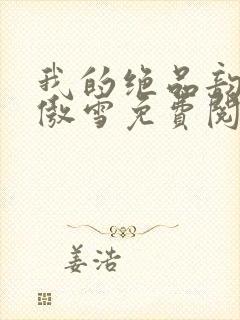 我的绝品
傲雪免费阅
姜浩